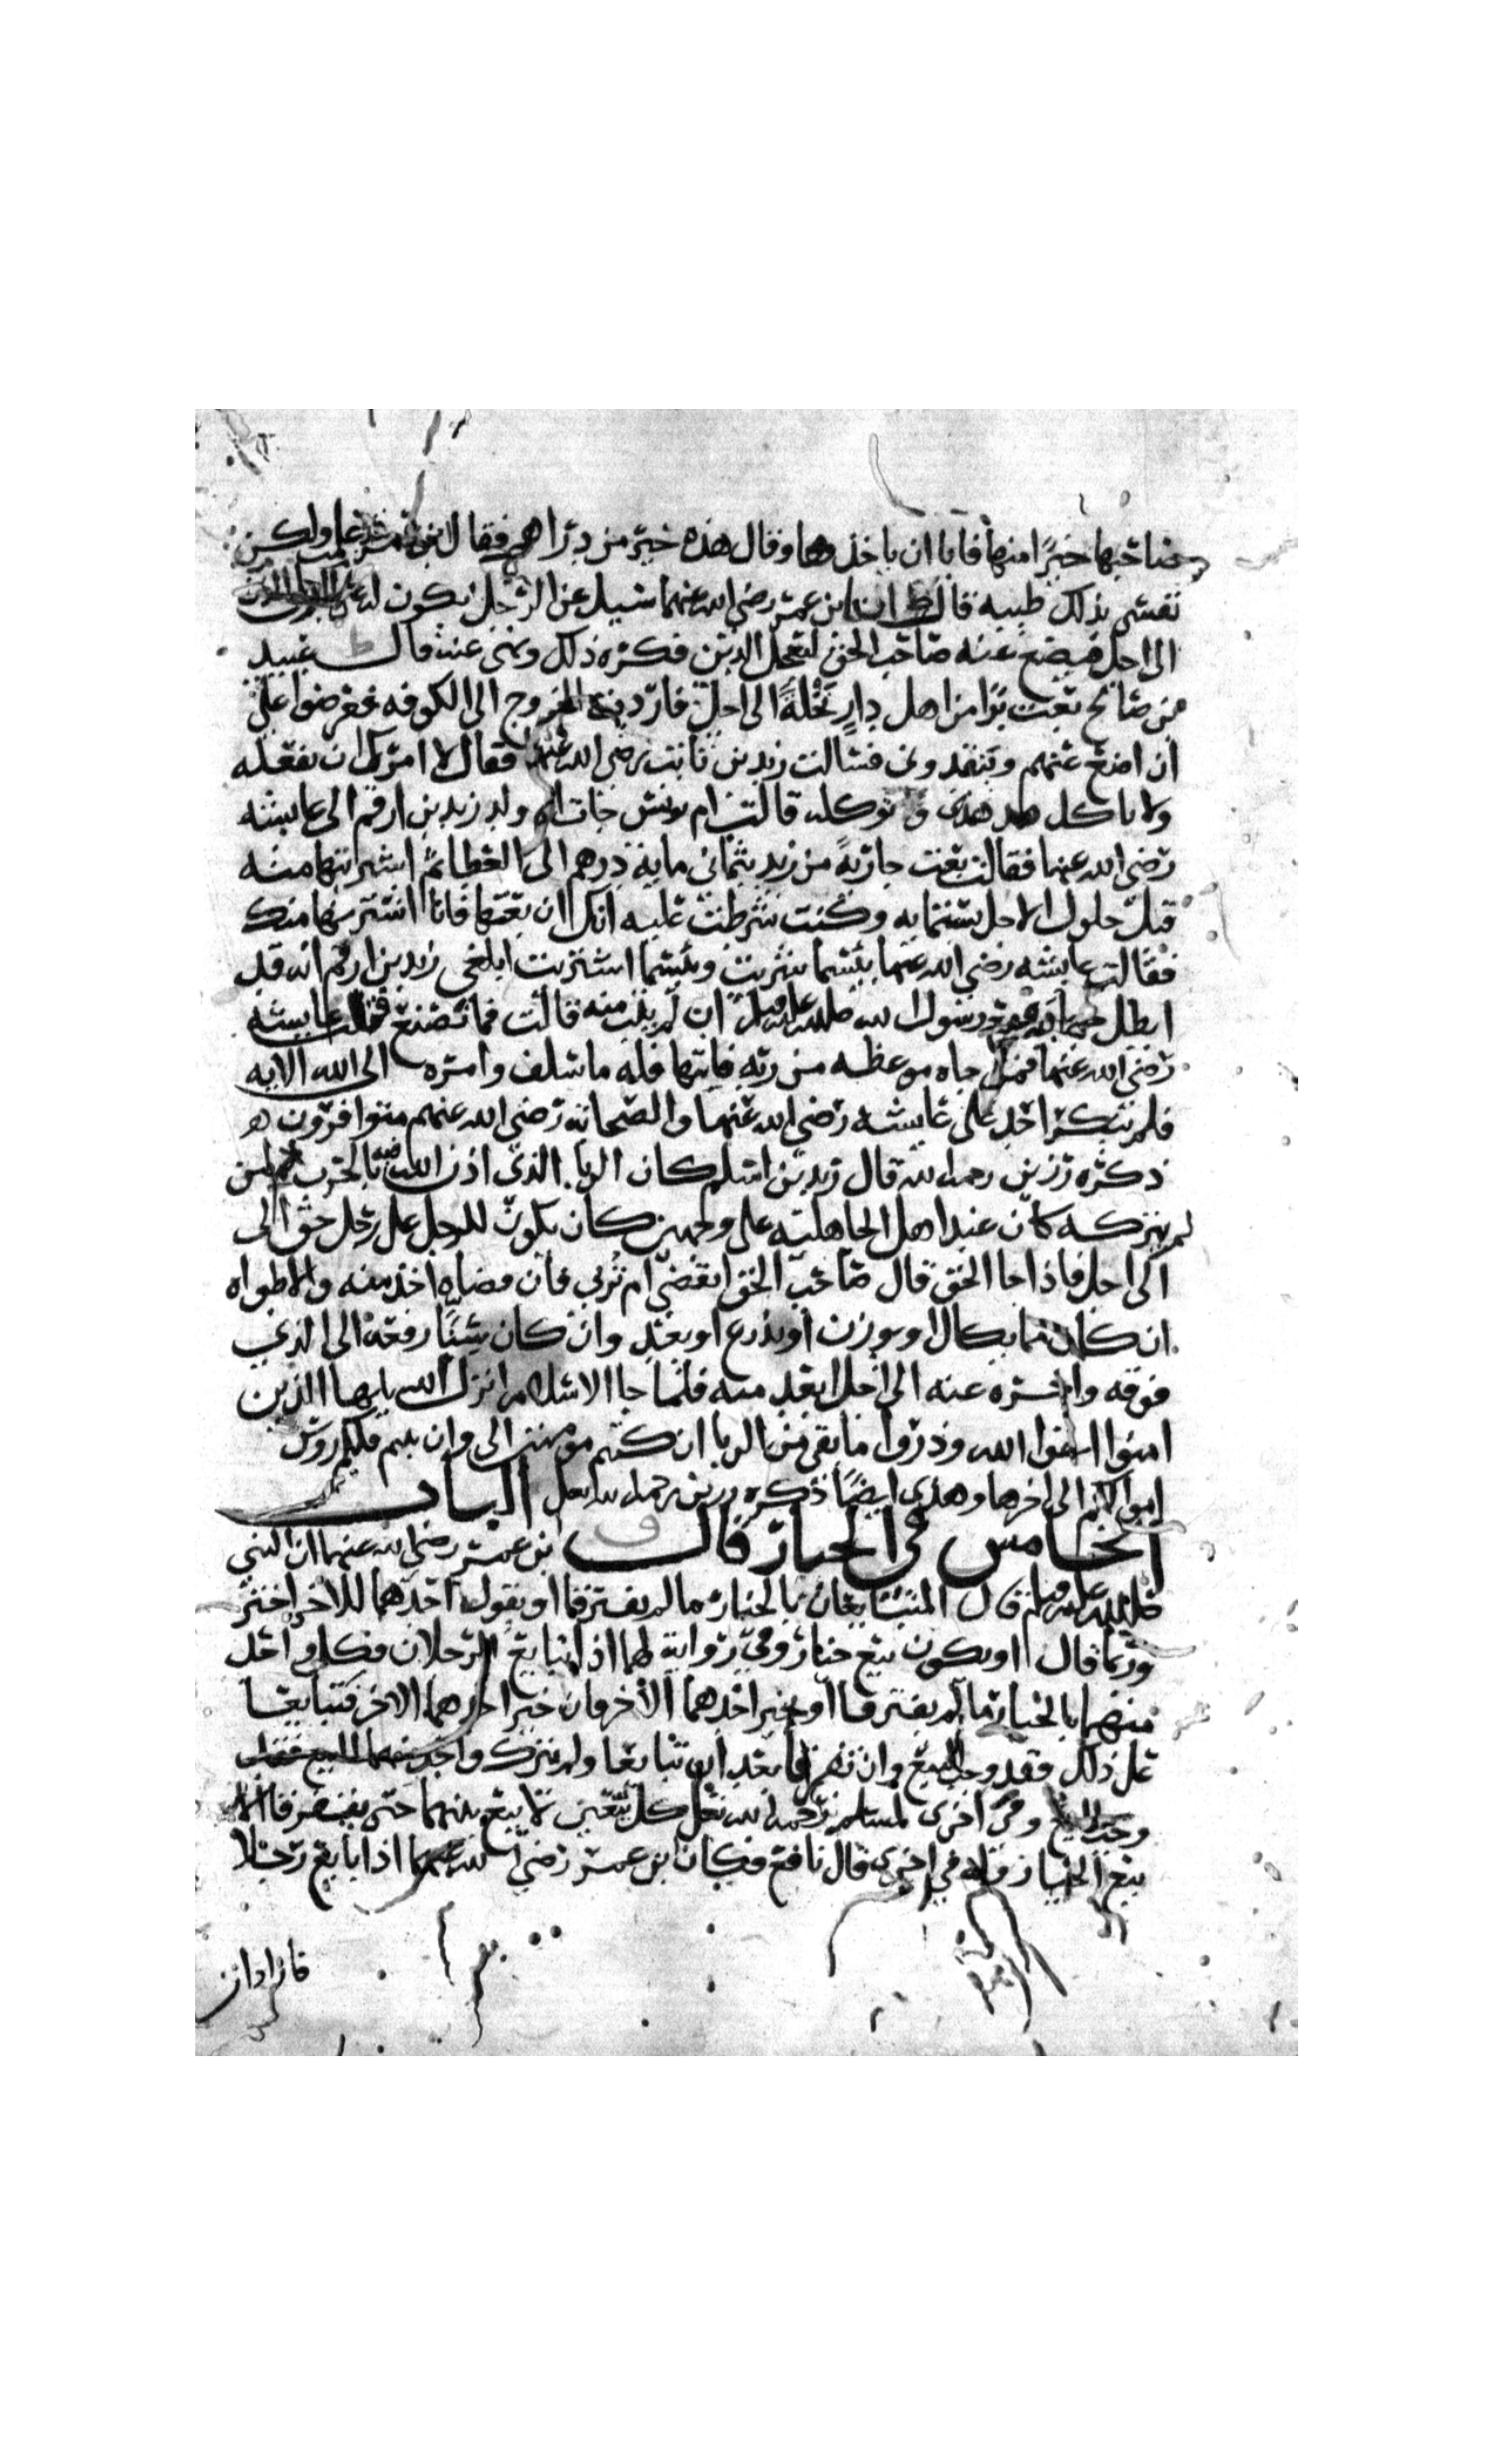 صاحبها خيرًا منها فابا ان ياخذها وقال هذه خير من دراهمي فقال ابن عمر قد علمت ولكن
نفسي بذلك طيبه قال ط ان ابن عمر رضي الله عنهما سيل عن الرجل يكون له على الرجل الدين
الى اجل فيضع عنه صاحب الحق ليعجل الدين فكره ذلك ونهى عنه قال ط عبيد
بن صالح بعت بزا من اهل دار نخلة الى اجل فاردت الخروج الى الكوفه فعرضوا علي
ان اضع عنهم وينقدوني فسالت زيد بن ثابت رضي الله عنه فقال لا امرك ان تفعله
ولا تاكل هذا وتوكله قالت ام يونس جات ام ولد زيد بن ارقم الى عايشه
رضي الله عنها فقالت بعت جارية من زيد بثماني ماية درهم الى العطا ثم اشتريتها منه
قبل حلول الاجل بستمايه وكنت شرطت عليه انك ان بعتها فانا اشتريها منك
فقالت عايشه رضي الله عنها بيسما شريت وبيسما اشتريت ابلغي زيد بن ارقم انه قد
ابطل جهاده مع رسول الله صلى الله عليه وسلم ان لم يتب منه قالت فما تصنع قالت عايشه
رضي الله عنها فمن جاه موعظه من ربه فانتها فله ما سلف وامره الى الله الايه
فلم ينكر احد على عايشه رضي الله عنها والصحابه رضي الله عنهم متوافرون ه
ذكره رزين رحمه الله قال زيد بن اسلم كان الربا الذي اذن الله فيه بالحرب لمن
لم يتركه كان عند اهل الجاهليه على وجهين كان يكون للرجل على رجل حق الى
الى اجل فاذا حل الحق قال صاحب الحق اتقضي ام تربي فان قضاه اخذ منه والا طواه
ان كان مما يكال او يوزن او يذرع او يعد وان كان سنا رفعه الى الذي
فوقه واخره عنه الى اجل ابعد منه فلما جا الاسلام انزل الله يايها الذين
امنوا اتقوا الله وذروا ما بقي من الربا ان كنتم مومنين الى وان تبتم فلكم روس
اموالكم الى اخرها وهذي ايضًا ذكره رزين رحمه الله تعالى الباب
الخامس في الخيار قال ابن عمر رضي الله عنهما ان النبي
صلى الله عليه وسلم قال المتبايعان بالخيار ما لم يفترقا او يقول احدهما للاخر اختر
وربما قال او يكون بيع خيار وفي رواية لهما اذا تبايع الرجلان فكل واحد
منهما بالخيار ما لم يفترقا او يخير احدهما الاخر فان خير احدهما الاخر فتبايعا
على ذلك فقد وجب البيع وان تفرقا بعد ان تبايعا ولم يترك واحد منهما البيع فقد
وجب البيع وفي اخرى لمسلم رحمه الله تعالى كل بيعين لا بيع بينهما حتى يفترقا الا
بيع الخيار وله في اخرى قال نافع فكان ابن عمر رضي الله عنهما اذا بايع رجلا
فاراد ان